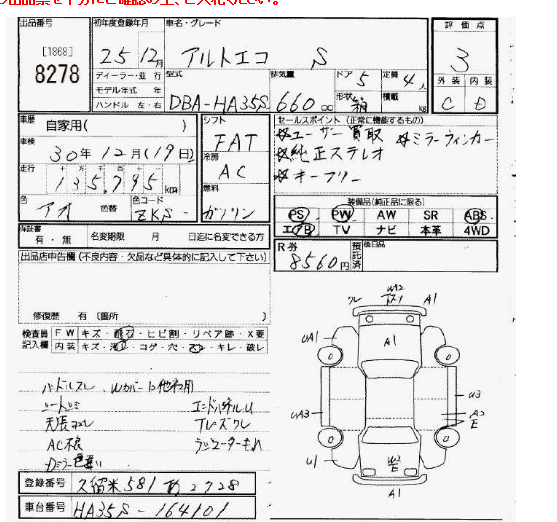 の出品票を十分にご確認の上、ご入札ください。
出品番号 [1868] 8278
初年度登録年月 25年12月
車名・グレード アルトエコ S
評価点 3
外装 C 内装 D
ディーラー・並行
モデル年式 年
ハンドル 左・右
型式 DBA-HA35S
排気量 660cc
ドア 5
形状 箱
定員 4人
積載 kg
車歴 自家用( )
車検 30年12月(19日)
走行 135,795km
色 アオ 色替
色コード ZKS
シフト FAT
冷房 AC
燃料 ガソリン
セールスポイント(正常に機能するもの)
※ユーザー買取 ※ミラーウィンカー
※純正ステレオ
※キーフリー
装備品(純正品に限る)
PS PW AW SR ABS
エアB TV ナビ 本革 4WD
保証書 有・無
名変期限 月 日迄に名変できる方
R券 8560円 預託済
後日品
出品店申告欄(不良内容・欠品など具体的に記入して下さい)
修復歴 有(箇所 )
検査員記入欄
FW キズ・飛石・ヒビ割・リペア跡・X要
内装 キズ・汚レ・コゲ・穴・キレ・破レ
ハンドルスレ
シートシミ
天張
AC不良
エンドパネルU
ミラー色違い
登録番号 久留米581 2728
車台番号 HA35S-164101
A1
A1
UA1
UA3
U1
U3
A2
E
W2
E
A1